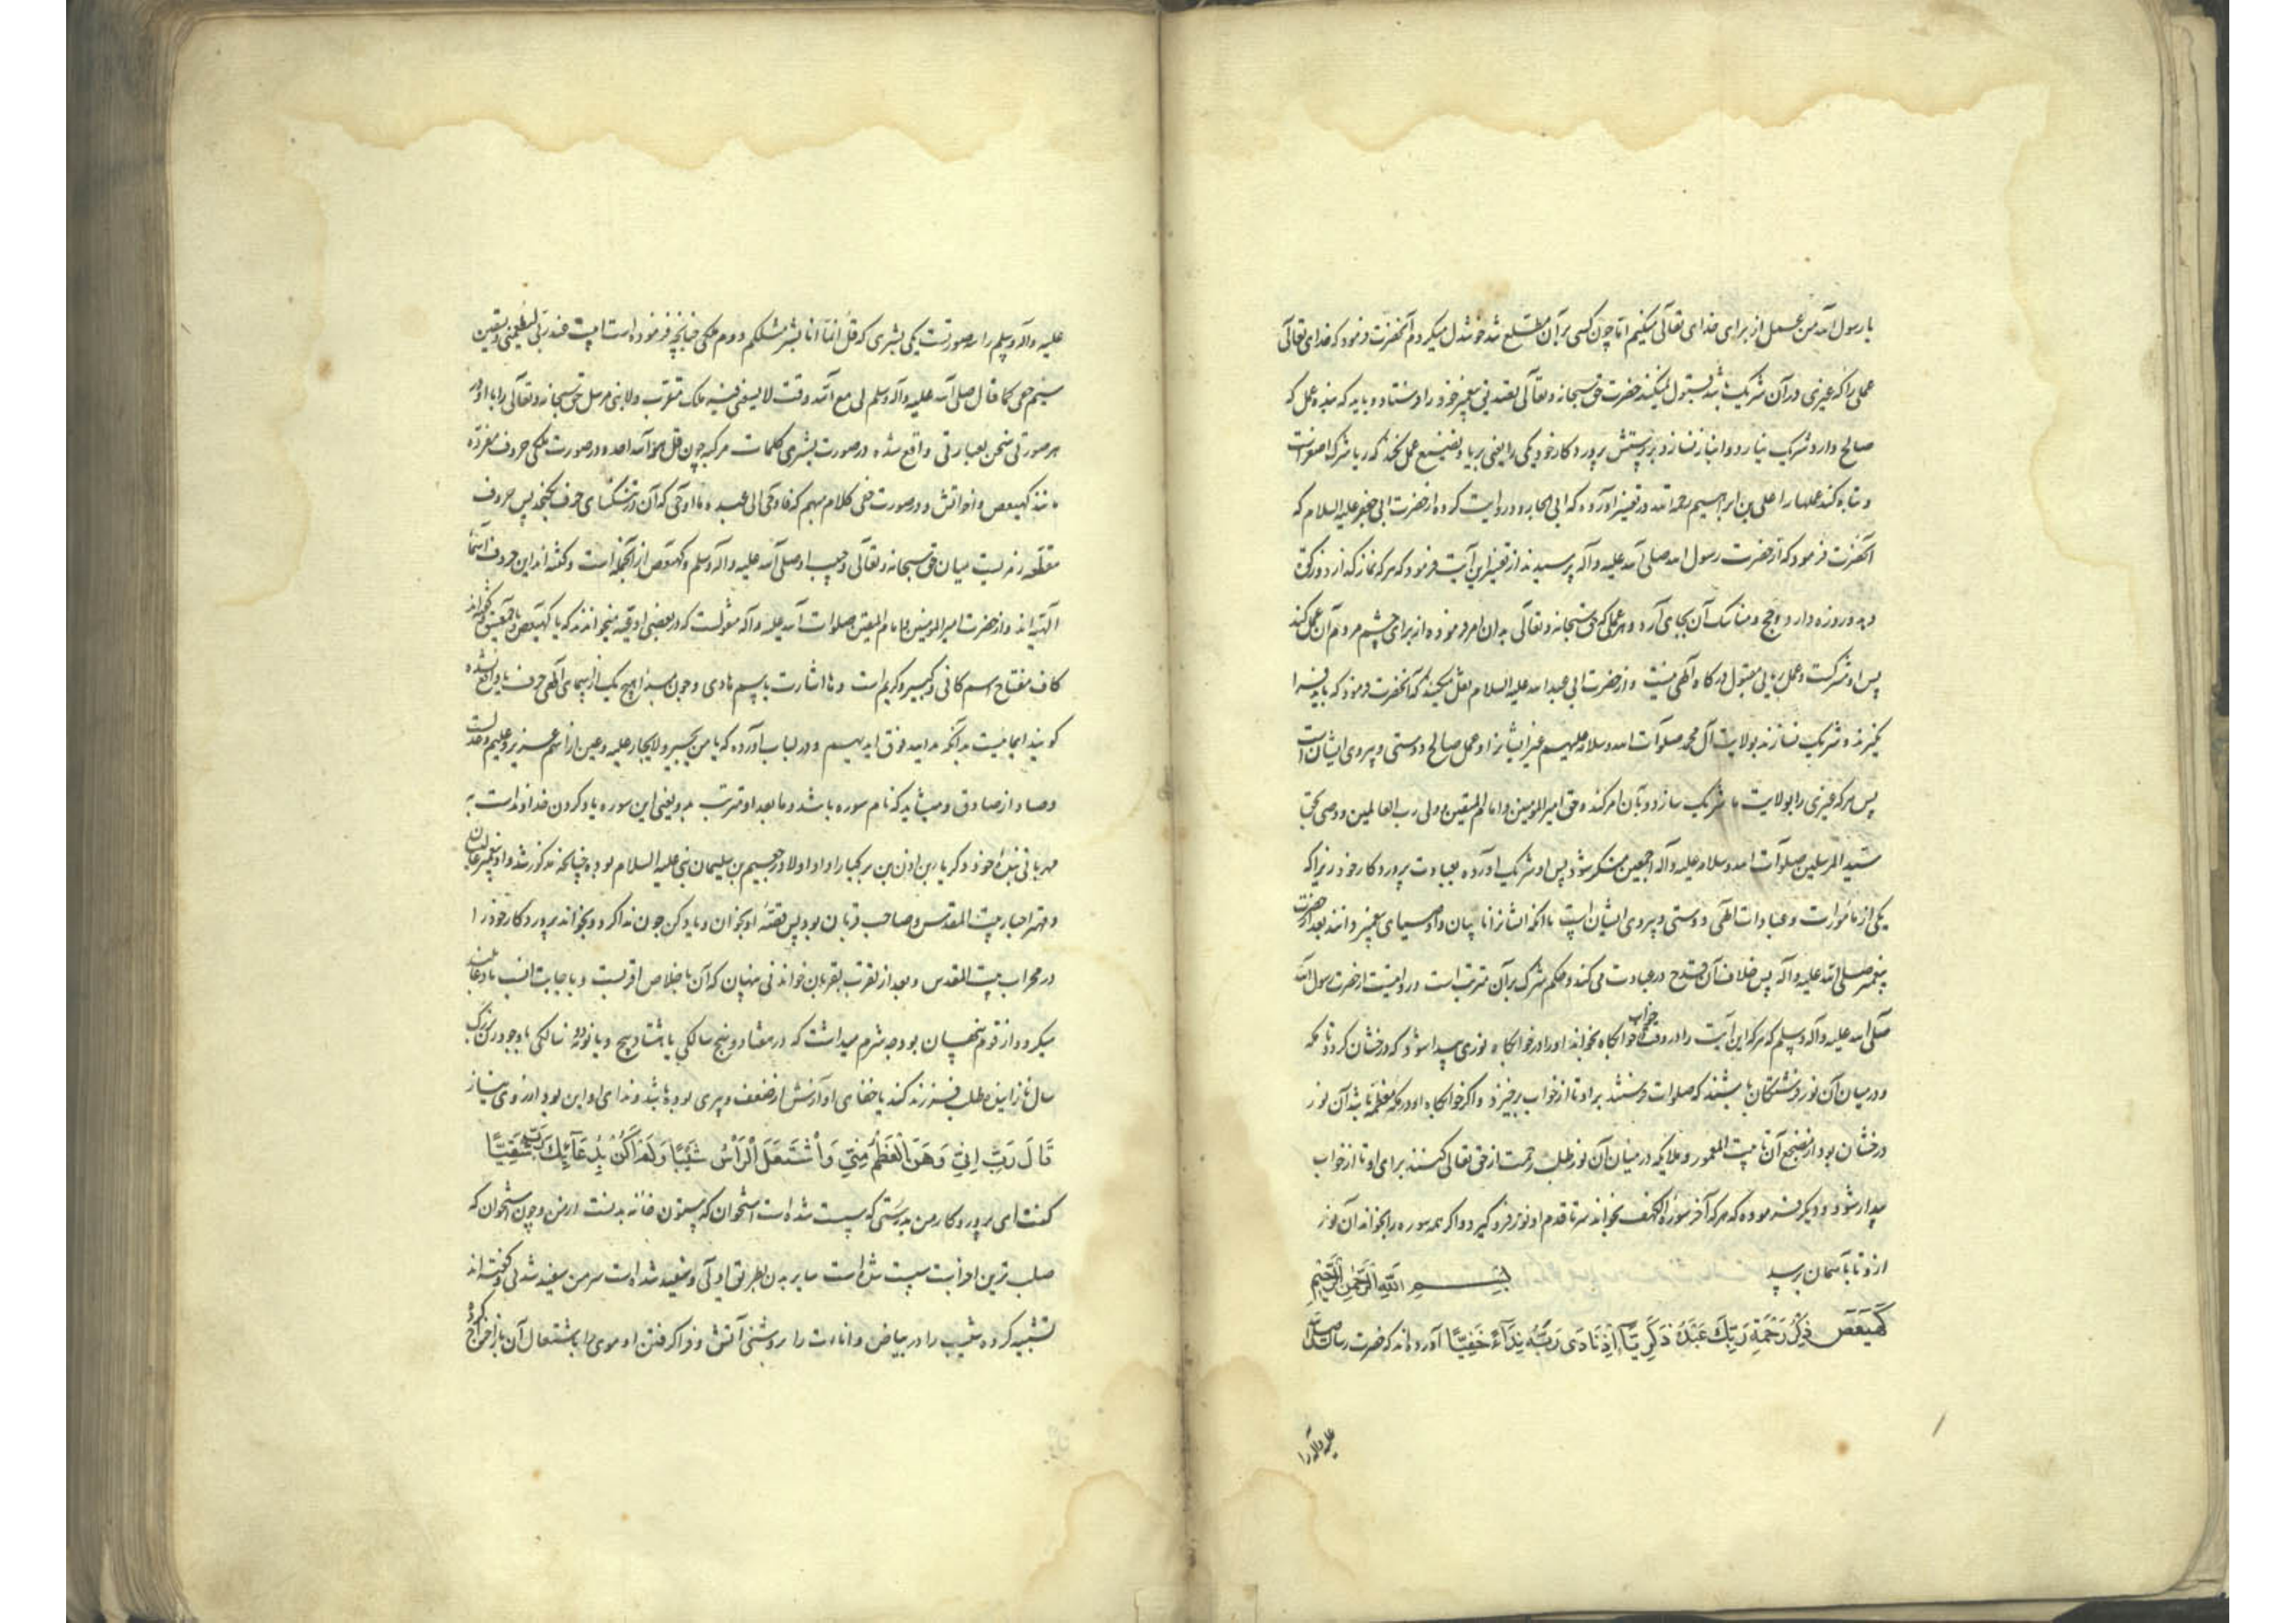 یا رسول الله من عمل از برای خدای تعالی میکنم اما چون کسی بر آن مطلع شد خوشدل میکردم آنحضرت فرمود که خدای تعالی
عملی را که غیری در آن شریک باشد قبول نمیکند حضرت حق سبحانه و تعالی تصدیق پیغمبر خود را فرستاد و باید که بنده عمل که
صالح دارد و شریک نیارد و انباز نسازد در پرستش پروردکار خود یکی را یعنی بریا و تصنیع عمل نکند که ریا شرک اصغر است
و تباه کند عملها را علی بن ابراهیم رحمه الله در تفسیر آورده که ابی الجارود روایت کرده از حضرت ابی جعفر علیه السلام که
آنحضرت فرمود که از حضرت رسول الله صلی الله علیه و آله پرسیدند از تفسیر این آیت فرمود که هر که نماز کذارد و زکوة
دهد و روزه دارد و حج و مناسک آن بجای آرد و هر عملی که حق سبحانه و تعالی بدان امر فرموده از برای چشم مردم آن عمل کند
پس او مشرکست و عمل ریایی مقبول درکاه الهی نیست و از حضرت ابی عبد الله علیه السلام نقل میکنند که آنحضرت فرمود که باید فرا
نکیرند و شریک نسازند بولایت آل محمد صلوات الله و سلامه علیهم غیر ایشانرا و عمل صالح دوستی و پیروی ایشان است
پس هر که غیری را بولایت ما شریک سازد و بآن امر کند و حق امیر المومنین و امام المتقین و ولی رب العالمین و وصی
سید المرسلین صلوات الله و سلامه علیه و آله اجمعین منکر شود پس او شریک آورده بعبادت پروردکار خود زیرا که
یکی از مأمورات و عبادات الهی دوستی و پیروی ایشان است با آنکه ایشانرا نایبان و اوصیای پیغمبر دانند بعد از حضرت
پیغمبر صلی الله علیه و آله پس خلاف آن قدح در عبادت می کند و حکم شرک بر آن مترتب است در روایتست از حضرت رسول الله
صلی الله علیه و آله و سلم که هر که این آیت را در وقت خواب خوابکاه بخواند او را در خوابکاه نوری پیدا شود که درخشان کردد تا مکه
و در میان آن نور فرشتکان باشند که صلوات فرستند بر او تا از خواب برخیزد و اکر خوابکاه او در مکه معظمه باشد آن نور
درخشان بود از مضجع آن تا بیت المعمور و ملایکه در میان آن نور طلب رحمت از حق تعالی کنند برای او تا از خواب
بیدار شود و دیکر فرموده که هر که آخر سوره الکهف بخواند سر تا قدم او نور فرو کیرد و اکر همه سوره را بخواند آن نور
از و تا بآسمان برسد بسم الله الرحمن الرحیم
كهيعص ذِكْرُ رَحْمَةِ رَبِّكَ عَبْدَهُ زَكَرِيَّا إِذْ نَادَى رَبَّهُ نِدَاءً خَفِيًّا آورده‌اند که حضرت رسالت صلی الله
علیه و آله را
علیه و آله و سلم را سه صورتست یکی بشری که قل انما انا بشر مثلکم دوم ملکی چنانچه فرموده است ابیت عند ربی یطعمنی و یسقین
سیم حقی کما قال صلی الله علیه و آله و سلم لی مع الله وقت لا یسعنی فیه ملک مقرب و لا نبی مرسل حق سبحانه و تعالی را با او در
هر صورتی سخن بعبارتی واقع شده در صورت بشری کلمات مرکبه چون قل هو الله احد و در صورت ملکی حروف مفرده
مانند کهیعص و اخواتش و در صورت حقی کلام مبهم که فاوحی الی عبده ما اوحی که آن در تنکنای حروف نکنجد پس حروف
مقطعه رمزیست میان حق سبحانه و تعالی و حبیب او صلی الله علیه و آله و سلم و کهیعص از آنجمله است و کفته اند این حروف اسماء
الهیه اند و از حضرت امیر المومنین و امام المتقین صلوات الله علیه و آله منقولست که در بعضی ادعیه میخواندند که یا کهیعص یا حمعسق کفته اند
کاف مفتاح اسم کافی و کبیر و کریم است و ها اشارت باسم هادی و چون در هیچ یک از اسمای الهی حرف یا واقع نشده
کویند ایمانیست بدانکه ید الله فوق ایدیهم و در لباب آورده که یا من یجیر و لا یجار علیه و عین از اسم عزیز و علیم و عدلست
و صاد از صادق و میشاید که نام سوره باشد و ما بعد او مترتب بدو یعنی این سوره یاد کردن خداوندست به
مهربانی بندۀ خود زکریا بن اذن بن برکیا را و او از اولاد رجعیم بن سلیمان نبی علیه السلام بوده چنانچه مذکور شد و او پیغمبر عالیشان
و مهتر احبار بیت المقدس و صاحب قربان بود پس قصۀ او بخوان و یاد کن چون ندا کرد و بخواند پروردکار خود را
در محراب بیت المقدس و بعد از تقرب بقربان خواندنی پنهان که آن باخلاص اقربست و باجابت انسب یا دعا
میکرد و از قوم پنهان بود چه شرم میداشت که در هفتاد و پنج سالکی یا هشتاد و پنج و یا نود و نه سالکی با وجود زن بزرک
سال نازاینده طلب فرزند کند یا خفای او آوازش از ضعف و پیری بوده باشد و ندای او این بود از روی نیاز
قَالَ رَبِّ إِنِّي وَهَنَ الْعَظْمُ مِنِّي وَاشْتَعَلَ الرَّأْسُ شَيْبًا وَلَمْ أَكُنْ بِدُعَائِكَ رَبِّ شَقِيًّا
کفت ای پروردکار من بدرستی که سست شده است استخوان که ستون خانه بدنست از من و چون استخوان که
صلب ترین اجزاست سست شده است سایر بدن بطریق اولی و سفید شده است سر من سفید شدنی و کفته اند
تشبیه کرده شیب را در بیاض و انارت را بروشنی آتش و فرا کرفتن او موی را باشتعال آن باز اخراج کرده